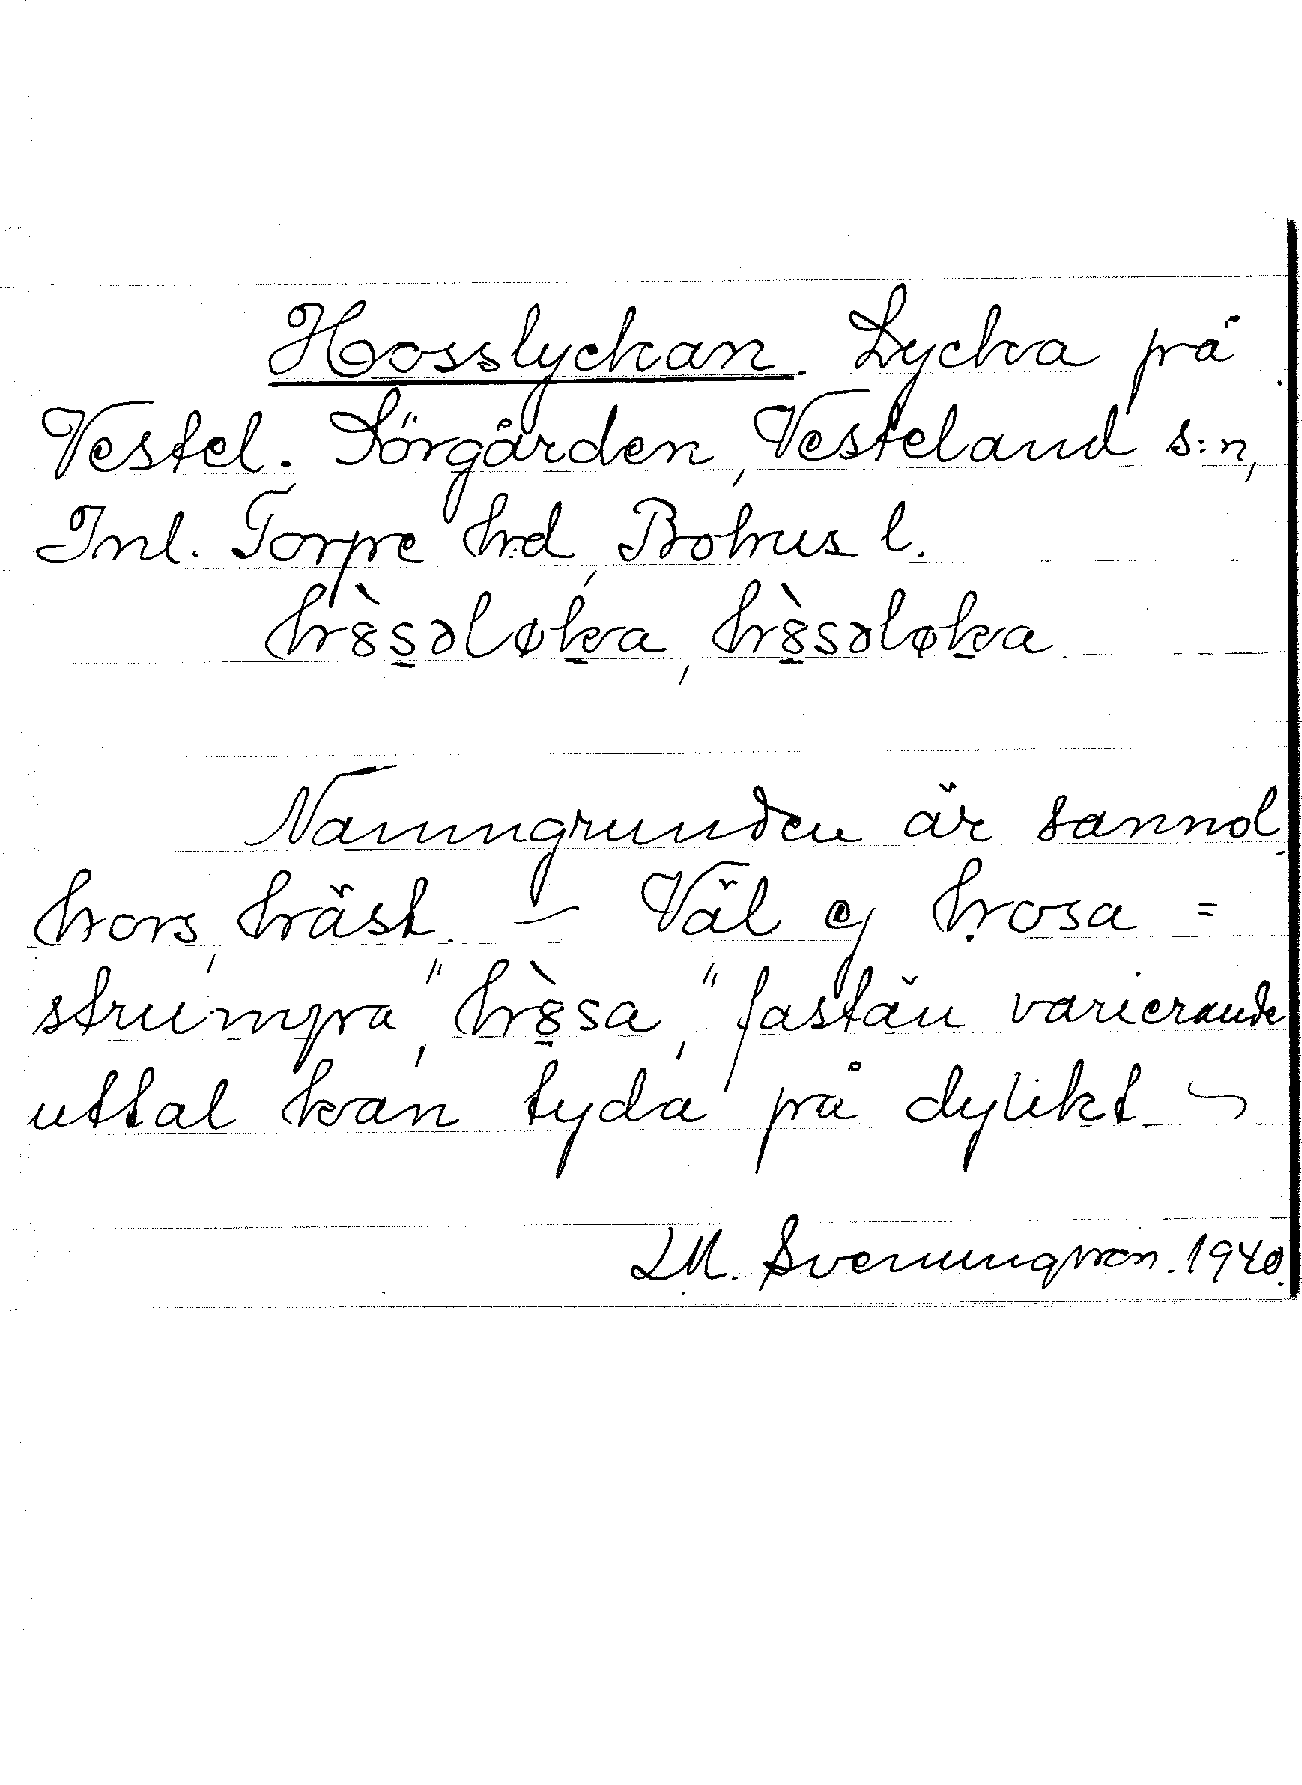 Hosslyckan. Lycka på
Vestel. Sörgården, Vesteland s:n,
Inl. Torpe hd, Bohus l.
hȣ̀s̱əløḵa, hȣ̱̀səløḵa
Namngrunden är sannol.
hors, häst. — Väl ej hosa =
strumpa, "hȣ̱̀sa," fastän varierande
uttal kan tyda på dylikt. —
LM. Svenungsson. 1940.